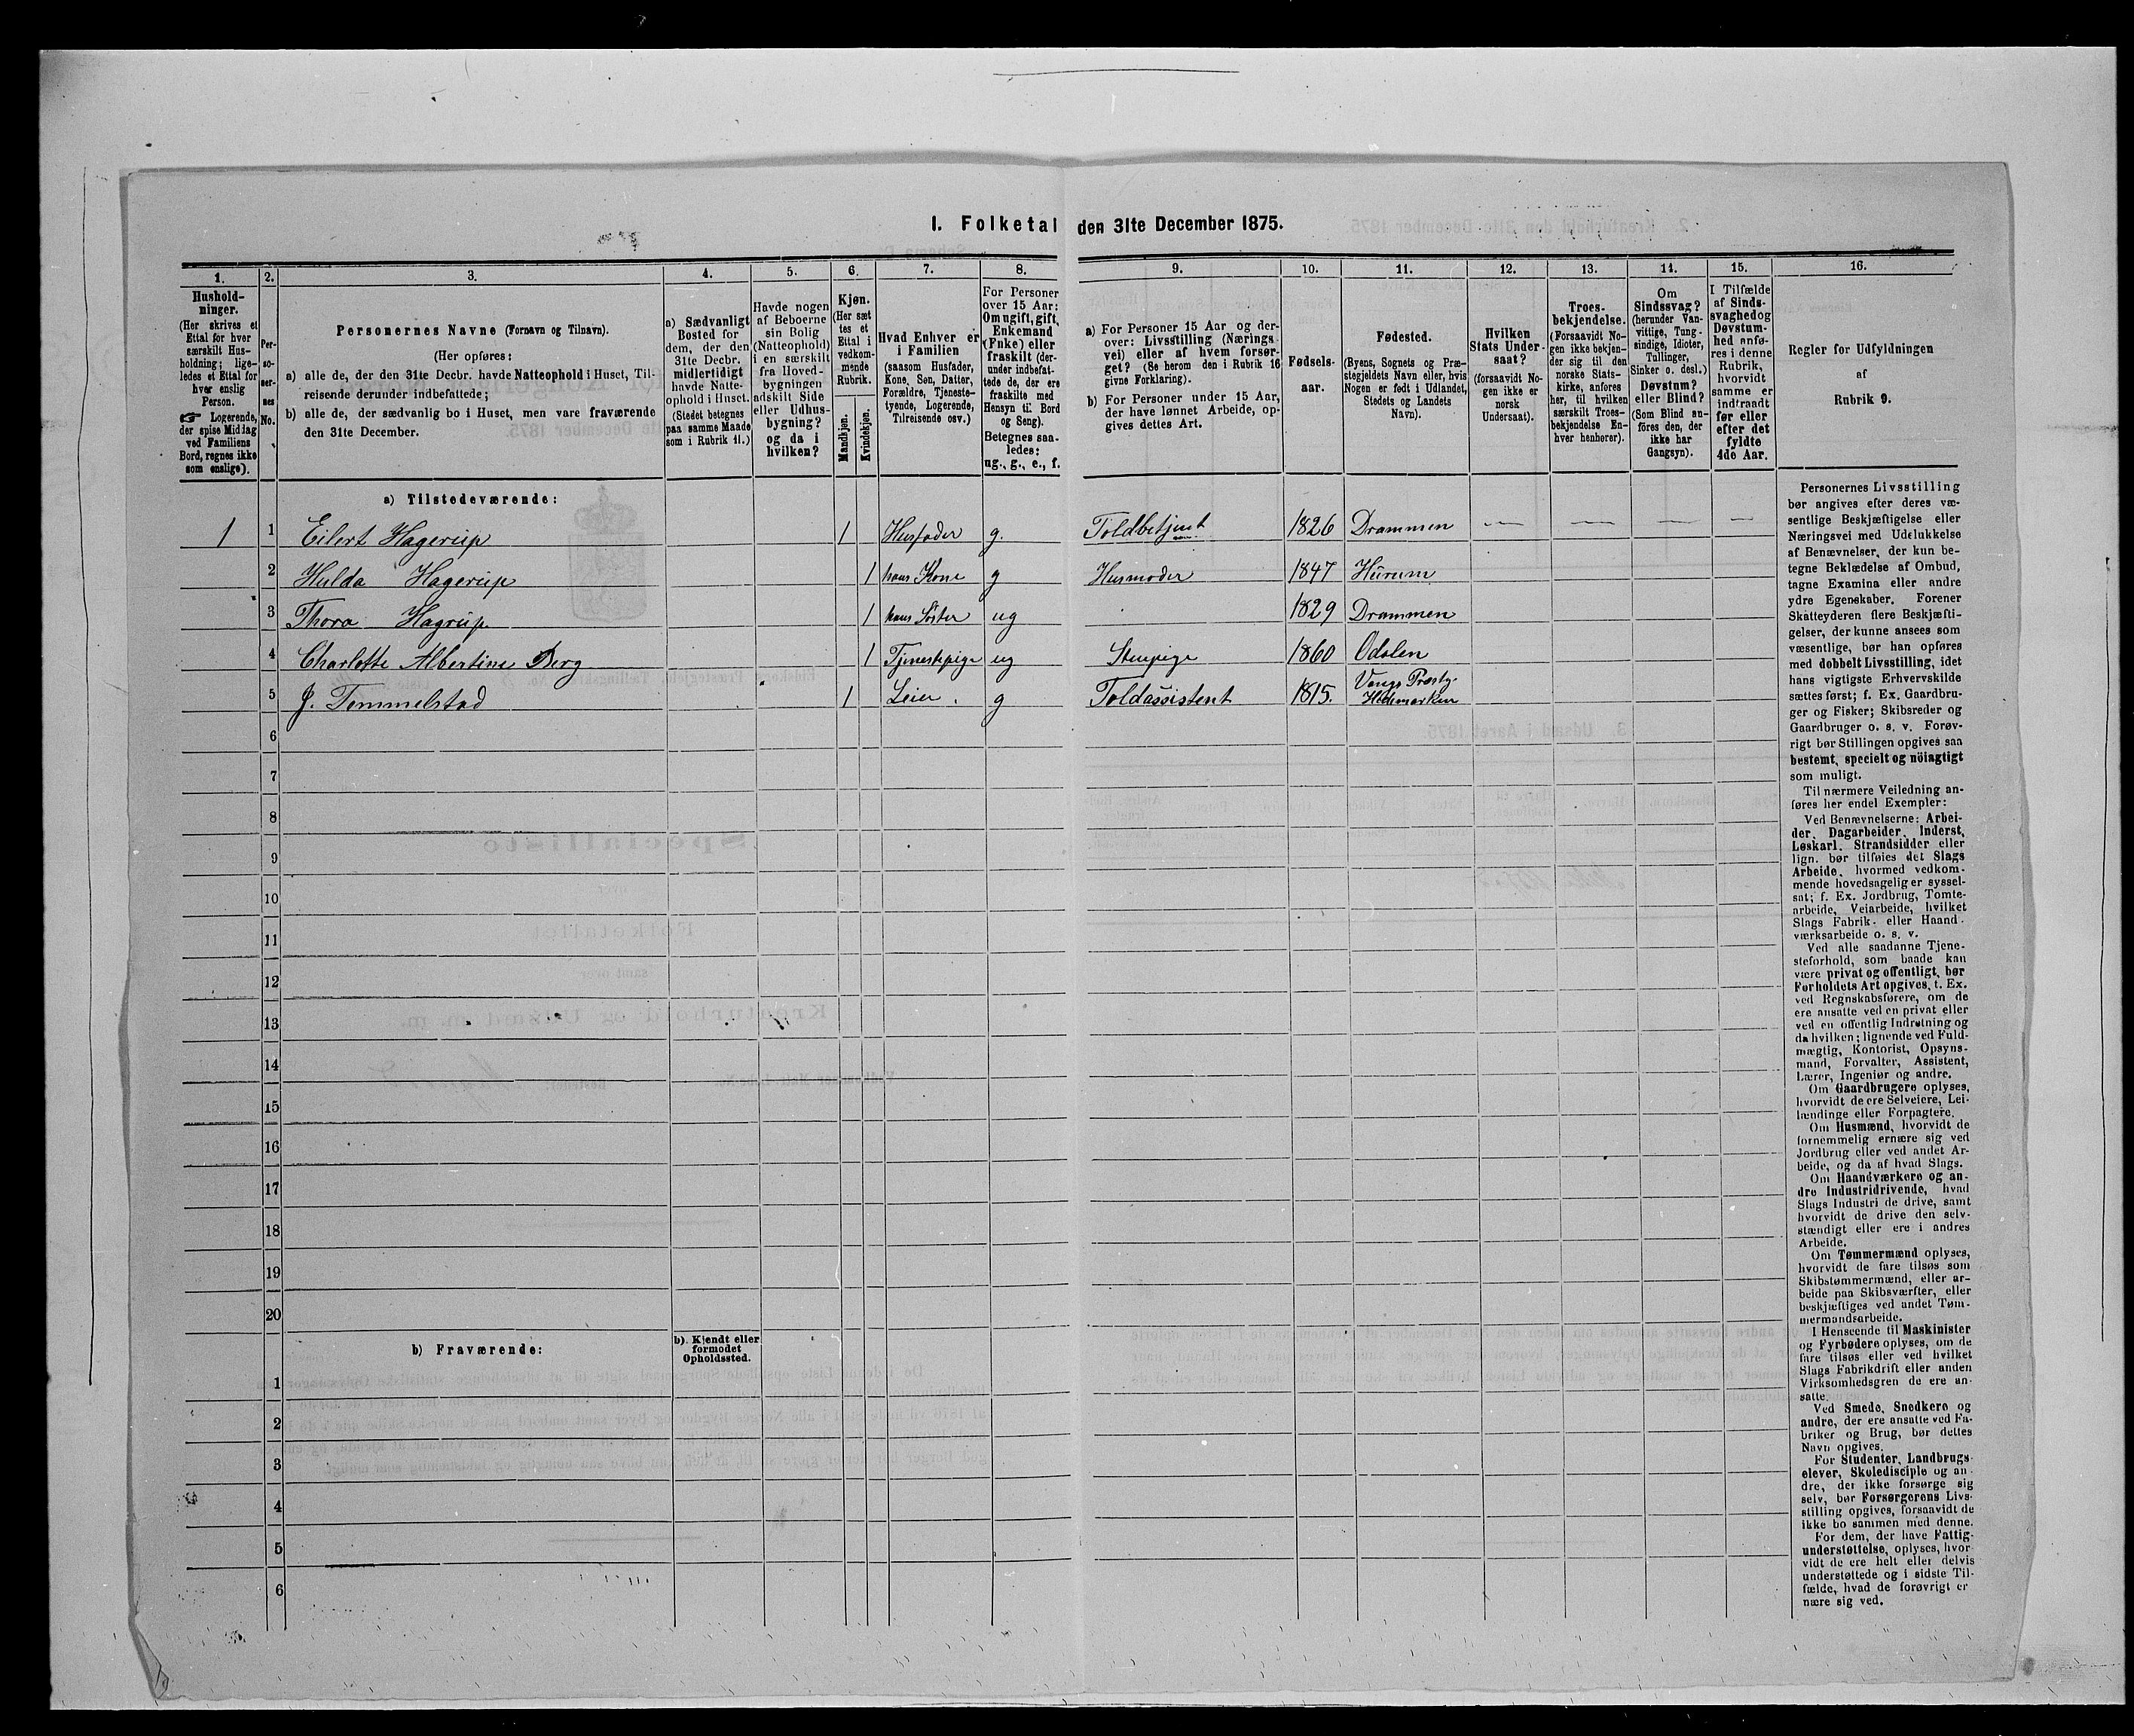 1. Folketal den 31te December 1875.
1.
2.
3.
4.
5.
6.
7.
8.
9.
10.
11.
12.
13.
14.
15.
16.
Hushold-
ninger.
(Her skrives et
Ettal for hver
særskilt Hus-
holdning; lige-
ledes et Ettal for
hver enslig
Person.
☞ Logerende,
der spise Middag
ved Familiens
Bord, regnes ikke
som enslige).
Per-
so-
ner-
nes
No.
Personernes Navne (Fornavn og Tilnavn).
(Her opføres:
a) alle de, der den 31te Decbr. havde Natteophold i Huset, Til-
reisende derunder indbefattede;
b) alle de, der sædvanlig bo i Huset, men vare fraværende
den 31te December.
a) Sædvanligt
Bosted for
dem, der den
31te Decbr.
midlertidigt
havde Natte-
ophold i Huset.
(Stedet betegnes
paa samme Maade
som i Rubrik 11.)
Havde nogen
af Beboerne
sin Bolig
(Natteophold)
i en særskilt
fra Hoved-
bygningen
adskilt Side
eller Udhus-
bygning?
og da i
hvilken?
Kjøn.
(Her sæt
tes et
Ettal i
vedkom-
mende
Rubrik.
Mandkjøn.
Kvindekjøn.
Hvad Enhver er
i Familien
(saasom Husfader,
Kone, Søn, Datter,
Forældre, Tjeneste-
tyende, Logerende,
Tilreisende osv.)
For Personer
over 15 Aar:
Om ugift, gift,
Enkemand
(Enke) eller
fraskilt (der-
under indbefat-
tede de, der ere
fraskilte med
Hensyn til Bord
og Seng).
Betegnes saa-
ledes:
ug., g., e., f.
a) For Personer 15 Aar og der-
over: Livsstilling (Nærings-
vei) eller af hvem forsør-
get? (Se herom den i Rubrik 16
givne Forklaring).
b) For Personer under 15 Aar,
der have lønnet Arbeide, op-
gives dettes Art.
Fødsels-
aar.
Fødested.
(Byens, Sognets og Præ-
stegjeldets Navn eller, hvis
Nogen er født i Udlandet,
Stedets og Landets
Navn).
Hvilken
Stats Under-
saat?
(forsaavidt No-
gen ikke er
norsk
Undersaat).
Troes-
bekjendelse.
(Forsaavidt No-
gen ikke bekjen-
der sig til den
norske Stats-
kirke, anføres
her, til hvilken
særskilt Troes-
bekjendelse En-
hver henhører).
Om
Sindssvag?
(herunder Van-
vittige, Tung-
sindige, Idioter,
Tullinger,
Sinker o. desl.)
Døvstum?
eller Blind?
(Som Blind an-
føres den, der
ikke har
Gangsyn).
I Tilfælde
af Sinds-
svaghed og
Døvstum-
hed anfø-
res i denne
Rubrik,
hvorvidt
samme er
indtraadt
før eller
efter det
fyldte
4de Aar.
Regler for Udfyldningen
af
Rubrik 9.
a) Tilstedeværende:
1 1 Eilert Hagerup 1 Husfader g. Toldbetjent 1826 Drammen — — — —
2 Hulda Hagerup 1 hans Kone g Husmoder 1847 Hurum
3 Thora Hagrup. 1 hans Søster ug 1829 Drammen
4 Charlotte Albertine Berg 1 Tjenestepige ug Stuepige 1860 Odalen
5 J. Tommelstad 1 Leier. g Toldassistent 1815. Vangs Præstg. Hedemarken
6
7
8
9
10
11
12
13
14
15
16
17
18
19
20
b) Fraværende:
b). Kjendt eller
formodet
Opholdssted.
1
2
3
4
5
6
Personernes Livsstilling
bør angives efter deres væ-
sentlige Beskjæftigelse eller
Næringsvei med Udelukkelse
af Benævnelser, der kun be-
tegne Beklædelse af Ombud,
tagne Examina eller andre
ydre Egenskaber. Forener
Skatteyderen flere Beskjæfti-
gelser, der kunne ansees som
væsentlige, bør han opføres
med dobbelt Livsstilling, idet
hans vigtigste Erhvervskilde
sættes først; f. Ex. Gaardbru-
ger og Fisker; Skibsreder og
Gaardbruger o. s. v. Forøv-
rigt bør Stillingen opgives saa
bestemt, specielt og nöiagtigt
som muligt.
Til nærmere Veiledning an-
føres her endel Exempler:
Ved Benævnelserne: Arbei-
der, Dagarbeider, Inderst,
Løskarl, Strandsidder eller
lign. bør tilføies det Slags
Arbeide, hvormed vedkom-
mende hovedsagelig er syssel-
sat; f. Ex. Jordbrug, Tomte-
arbeide, Veiarbeide, hvilket
Slags Fabrik- eller Haand-
værksarbeide o. s. v.
Ved alle saadanne Tjene-
steforhold, som baade kan
være privat og offentligt, bør
Forholdets Art opgives, t. Ex.
ved Regnskabsførere, om de
ere ansatte ved en privat eller
ved en offentlig Indretning og
da hvilken; lignende ved Fuld-
mægtig, Kontorist, Opsyns-
mand, Forvalter, Assistent,
Lærer, Ingeniør og andre.
Om Gaardbrugere oplyses,
hvorvidt de ere Selveiere, Lei-
lændinge eller Forpagtere.
Om Husmænd, hvorvidt de
fornemmelig ernære sig ved
Jordbrug eller ved andet Ar-
beide, og da af hvad Slags.
Om Haandværkere og an-
dre Industridrivende, hvad
Slags Industri de drive, samt
hvorvidt de drive den selv-
stændigt eller ere i andres
Arbeide.
Om Tømmermænd oplyses,
hvorvidt de fare tilsøs som
Skibstømmermænd, eller ar-
beide paa Skibsværfter, eller
beskjæftiges ved andet Tøm-
mermandsarbeide.
I Henseende til Maskinister
og Fyrbødere oplyses, om de
fare tilsøs eller ved hvilket
Slags Fabrikdrift eller anden
Virksomhedsgren de ere an-
satte.
Ved Smede, Snedkere og
andre, der ere ansatte ved Fa-
briker og Brug, bør dettes
Navn opgives.
For Studenter, Landbrugs-
elever, Skoledisciple og an-
dre, der ikke forsørge sig
selv, bør Forsørgerens Livs-
stilling opgives, forsaavidt de
ikke bo sammen med denne.
For dem, der have Fattig-
understøttelse, oplyses, hvor-
vidt de ere helt eller delvis
understøttede og i sidste Til-
fælde, hvad de forøvrigt er
nære sig ved.